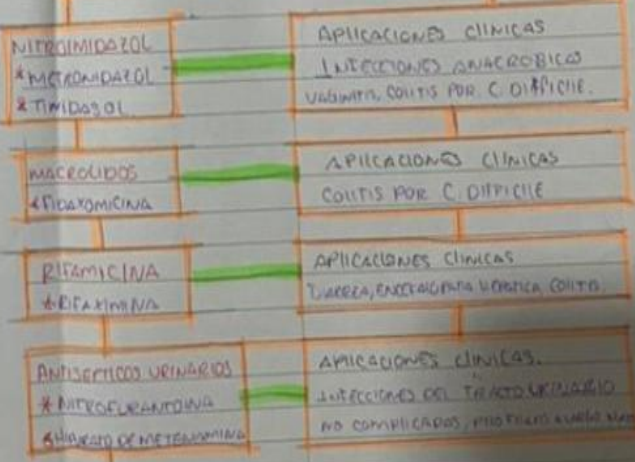 NITROIMIDAZOL
* METRONIDAZOL
* TINIDASOL
APLICACIONES CLINICAS
INFECCIONES ANAEROBICAS
VAGINITIS, COLITIS POR C. DIFFICILE.
MACROLIDOS
* FIDAXOMICINA
APLICACIONES CLINICAS
COLITIS POR C. DIFFICILE
RIFAMICINA
* RIFAXIMINA
APLICACIONES CLINICAS
DIARREA, ENCEFALOPATIA HEPATICA COLITIS
ANTISEPTICOS URINARIOS
* NITROFURANTOINA
* HIPURATO DE METENAMINA
APLICACIONES CLINICAS.
INFECCIONES DEL TRACTO URINARIO
NO COMPLICADAS,